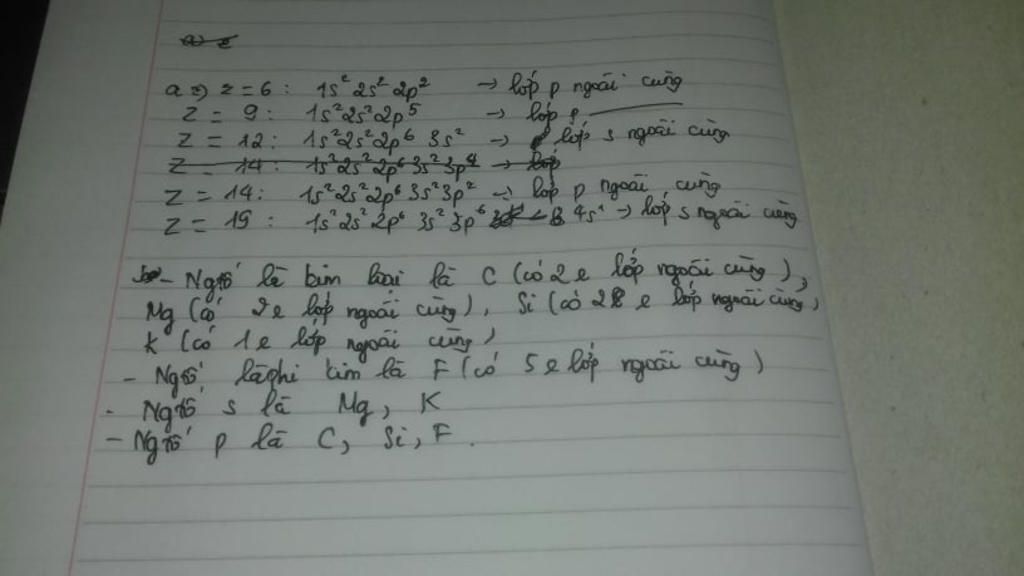 a => z = 6 : 1s² 2s² 2p² → lớp p ngoài cùng
Z = 9 : 1s² 2s² 2p⁵ → lớp p
Z = 12 : 1s² 2s² 2p⁶ 3s² → lớp s ngoài cùng
Z = 14 : 1s² 2s² 2p⁶ 3s² 3p⁴ → lớp
Z = 14 : 1s² 2s² 2p⁶ 3s² 3p² → lớp p ngoài cùng
Z = 19 : 1s² 2s² 2p⁶ 3s² 3p⁶ 4s¹ → lớp s ngoài cùng
- Ngtố là kim loại là C (có 2 e lớp ngoài cùng),
Mg (có 2e lớp ngoài cùng), Si (có 2 e lớp ngoài cùng)
K (có 1 e lớp ngoài cùng)
- Ngtố là phi kim là F (có 5 e lớp ngoài cùng)
- Ngtố s là Mg, K
- Ngtố p là C, Si, F.